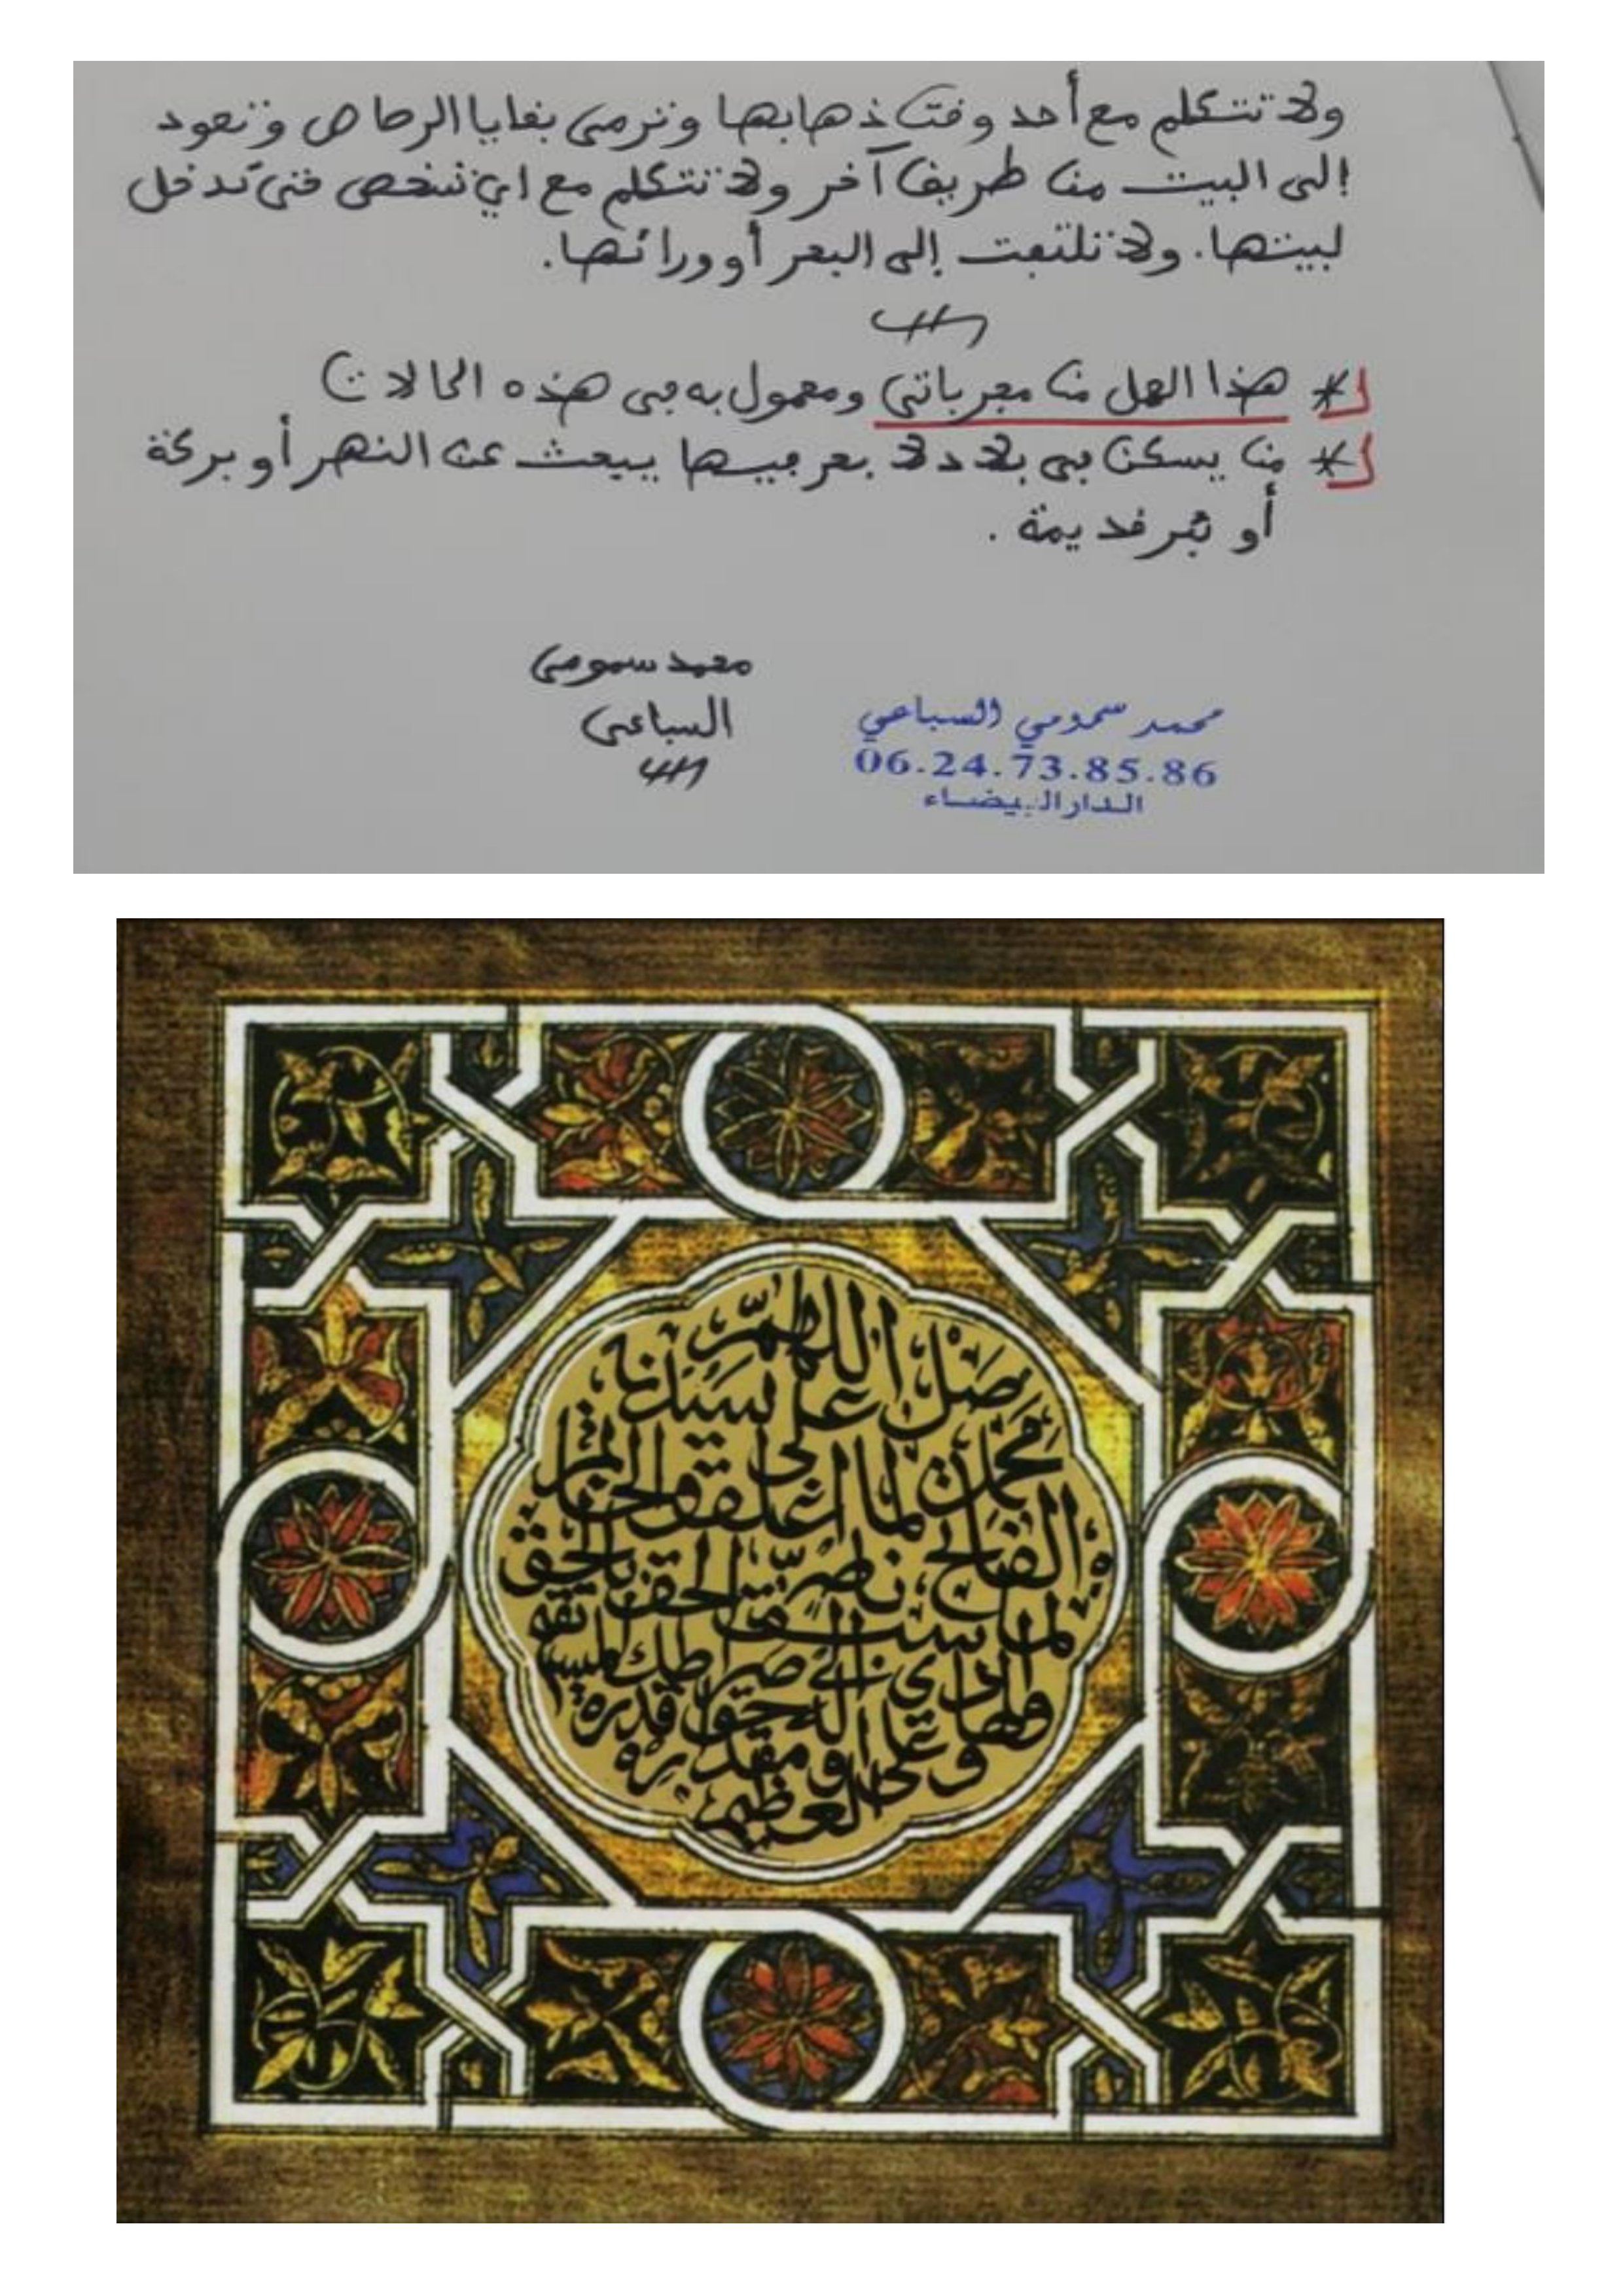 ولا تتكلم مع أحد وقت ذهابها وترمي بقايا الرصاص وتعود
إلى البيت من طريق آخر ولا تتكلم مع اي شخص حتى تدخل
لبيتها. ولا تلتفت إلى البحر أو ورائها.
* هذا العمل من مجرباتي ومعمول به في هذه الحالات
* من يسكن في بلاد لا بحر فيها يبحث عن النهر أو بركة
أو بئر قديمة .
محمد سمومي
السباعي
محمد سمومي السباعي
06.24.73.85.86
الدار البيضاء
اللهم
صل على سيدنا
محمد الفاتح لما أغلق والخاتم
لما سبق ناصر الحق بالحق
والهادي إلى صراطك المستقيم
وعلى آله حق قدره
ومقداره
العظيم